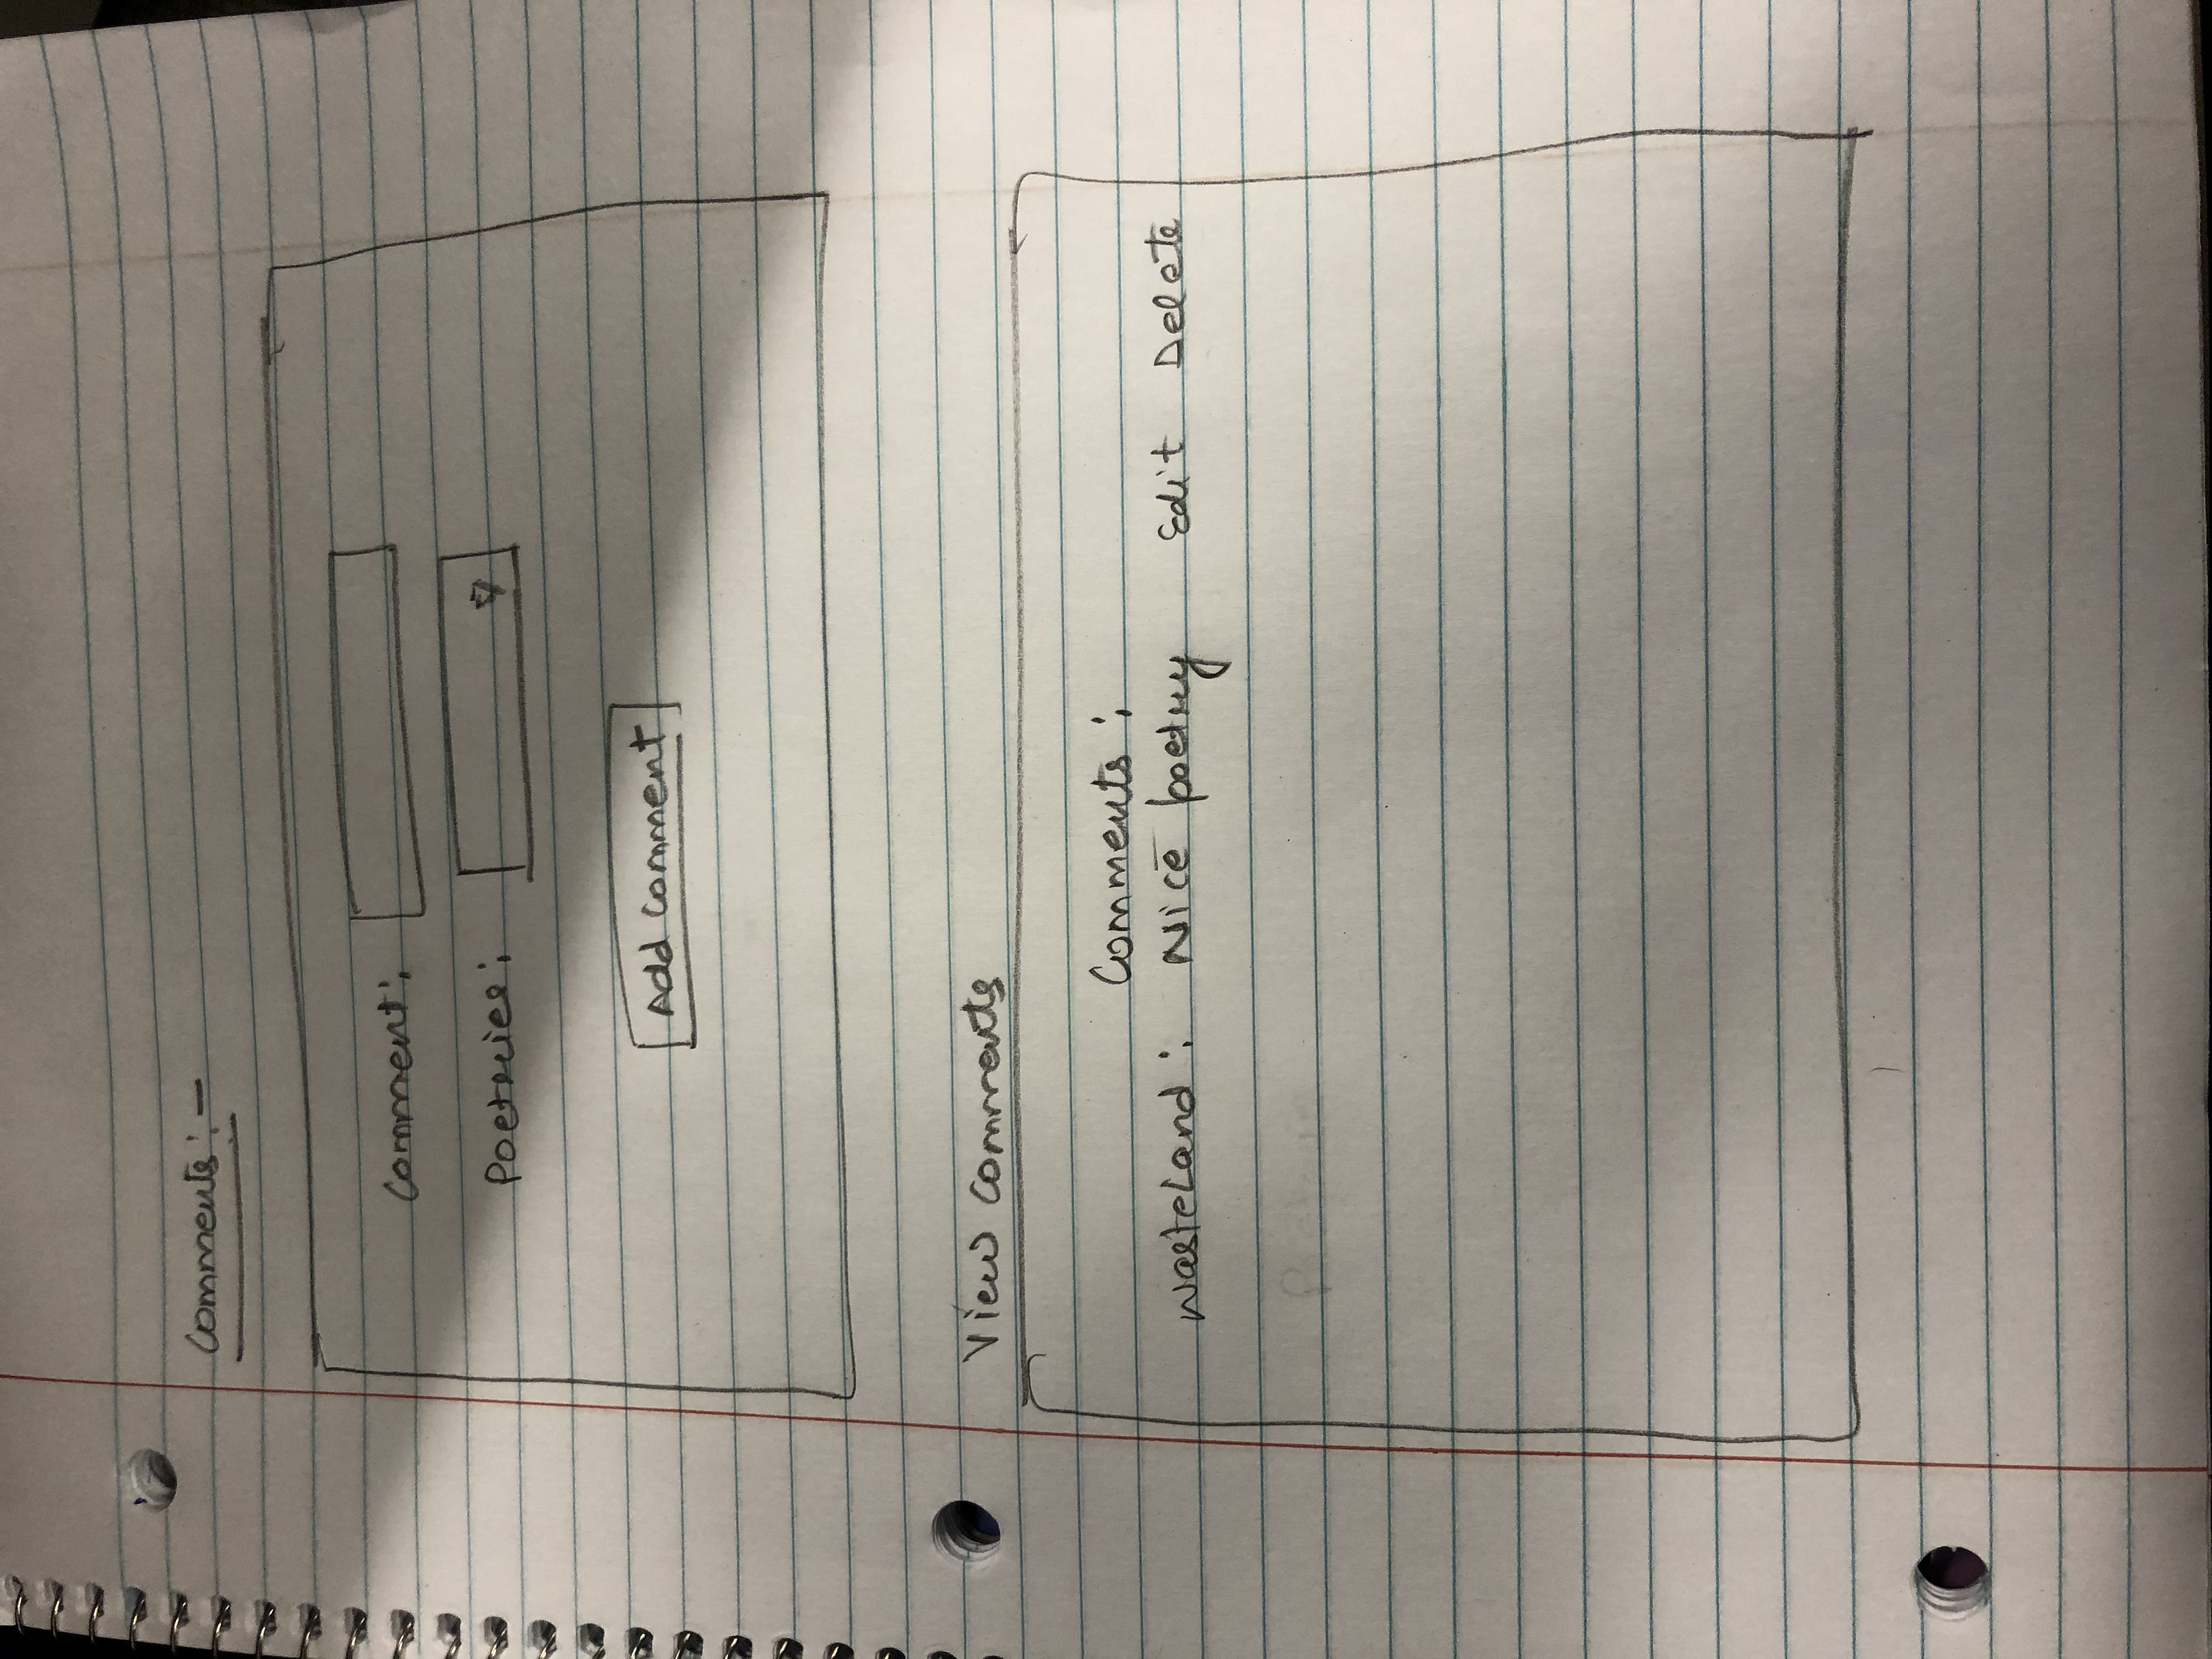 Comments:-
Comment:
Poetries:
Add Comment
View Comments
Comments:
Wasteland: Nice poetry Edit Delete